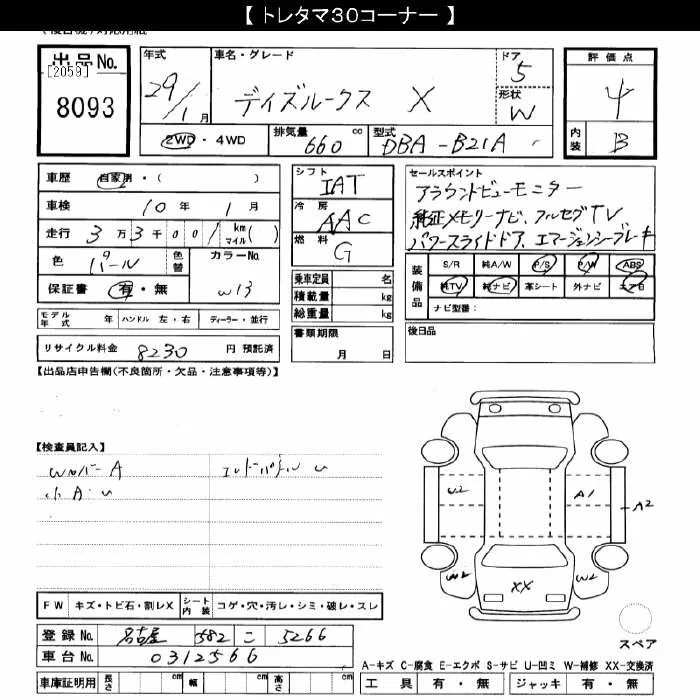 【 トレタマ30コーナー 】
出品No.
[2059]
8093
年式
29/1月
車名・グレード
デイズルークス X
ドア
5
形状
W
評価点
4
内装
B
2WD・4WD
排気量
660 cc
型式
DBA-B21A
車歴 自家用・( )
車検 10年 1月
走行 3万3千001 (km/マイル)
色 パール
色替
カラーNo.
W13
保証書 有・無
シフト
IAT
冷房
AAC
燃料
G
セールスポイント
アラウンドビューモニター
純正メモリーナビ、フルセグTV
パワースライドドア、エマージェンシーブレーキ
装備品
S/R 純A/W P/S P/W ABS
純TV 純ナビ 革シート 外ナビ エアB
ナビ型番:
乗車定員 名
積載量 kg
総重量 kg
モデル年式 年 ハンドル 左・右 ディーラー・並行
書類期限
月 日
後日品
リサイクル料金 8230 円 預託済
【出品店申告欄(不良箇所・欠品・注意事項等)】
【検査員記入】
小A・U
W2
A1
A2
W2
XX
W2
FW キズ・トビ石・割レX
シート内装 コゲ・穴・汚レ・シミ・破レ・スレ
登録No. 名古屋 582 こ 5266
車台No. 0312566
スペア
A-キズ C-腐食 E-エクボ S-サビ U-凹ミ W-補修 XX-交換済
車庫証明用 長さ cm 幅 cm 高さ cm
工具 有・無 ジャッキ 有・無